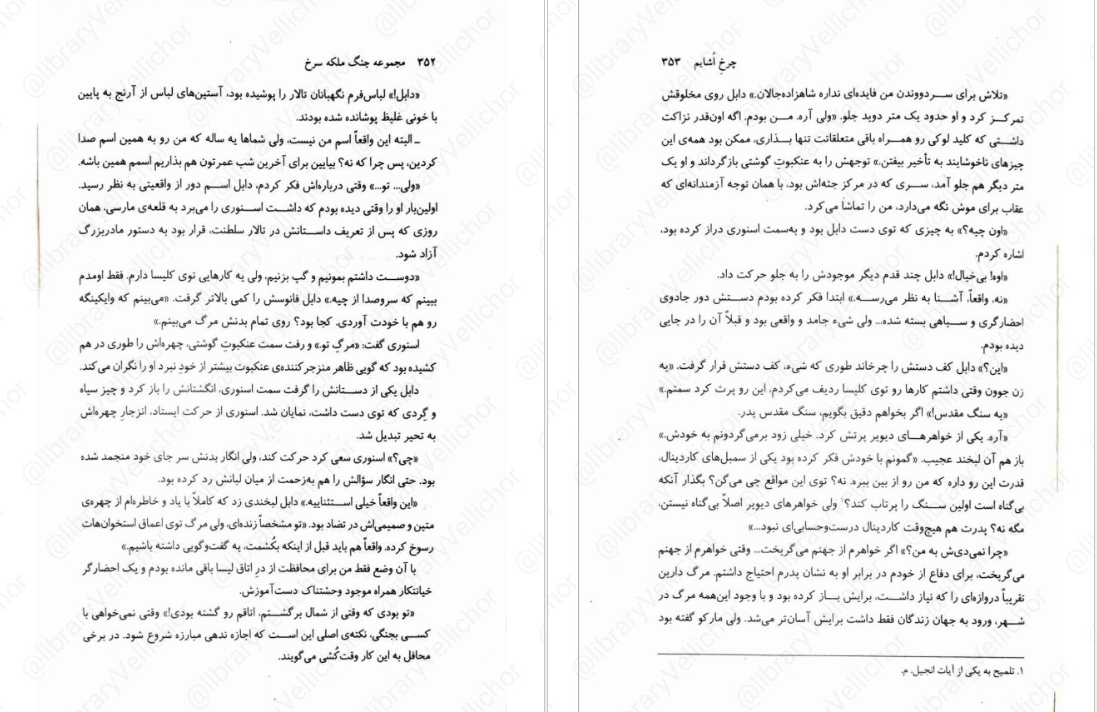 ۳۵۲ مجموعه جنگ ملکه سرخ
«دابل!» لباس‌فرم نگهبانان تالار را پوشیده بود، آستین‌های لباس از آرنج به پایین
با خونی غلیظ پوشانده شده بودند.
ـ البته این واقعاً اسم من نیست، ولی شماها یه ساله که من رو به همین اسم صدا
کردین، پس چرا که نه؟ بیایین برای آخرین شب عمرتون هم بذاریم اسمم همین باشه.
«ولی... تو...» وقتی درباره‌اش فکر کردم، دابل اسم دور از واقعیتی به نظر رسید.
اولین‌بار او را وقتی دیده بودم که داشت اسنوری را می‌برد به قلعه‌ی مارسی، همان
روزی که پس از تعریف داستانش در تالار سلطنت، قرار بود به دستور مادربزرگ
آزاد شود.
«دوست داشتم بمونیم و گپ بزنیم، ولی یه کارهایی توی کلیسا دارم. فقط اومدم
ببینم که سروصدا از چیه.» دابل فانوسش را کمی بالاتر گرفت. «می‌بینم که وایکینگه
رو هم با خودت آوردی. کجا بود؟ روی تمام بدنش مرگ می‌بینم.»
اسنوری گفت: «مرگِ تو.» و رفت سمت عنکبوت گوشتی، چهره‌اش را طوری در هم
کشیده بود که گویی ظاهر منزجرکننده‌ی عنکبوت بیشتر از خودِ نبرد او را نگران می‌کند.
دابل یکی از دستانش را گرفت سمت اسنوری، انگشتانش را باز کرد و چیز سیاه
و گِردی که توی دست داشت، نمایان شد. اسنوری از حرکت ایستاد، انزجارِ چهره‌اش
به تحیر تبدیل شد.
«چی؟» اسنوری سعی کرد حرکت کند، ولی انگار بدنش سر جای خود منجمد شده
بود. حتی انگار سؤالش را هم به‌زحمت از میان لبانش رد کرده بود.
«این واقعاً خیلی استثناییه.» دابل لبخندی زد که کاملاً با یاد و خاطره‌ام از چهره‌ی
متین و صمیمی‌اش در تضاد بود. «تو مشخصاً زنده‌ای، ولی مرگ توی اعماق استخوان‌هات
رسوخ کرده. واقعاً هم باید قبل از اینکه بکُشمت، یه گفت‌وگویی داشته باشیم.»
با آن وضع فقط من برای محافظت از درِ اتاق لیسا باقی مانده بودم و یک احضارگر
خیانتکار همراه موجود وحشتناک دست‌آموزش.
«تو بودی که وقتی از شمال برگشتم، اتاقم رو گشته بودی!» وقتی نمی‌خواهی با
کسی بجنگی، نکته‌ی اصلی این است که اجازه ندهی مبارزه شروع شود. در برخی
محافل به این کار وقت‌کُشی می‌گویند.
چرخ اُشایم ۳۵۳
«تلاش برای سردووندن من فایده‌ای نداره شاهزاده‌جالان.» دابل روی مخلوقش
تمرکز کرد و او حدود یک متر دوید جلو. «ولی آره. من بودم. اگه اون‌قدر نزاکت
داشتی که کلید لوکی رو همراه باقی متعلقاتت تنها بذاری، ممکن بود همه‌ی این
چیزهای ناخوشایند به تأخیر بیفتن.» توجهش را به عنکبوتِ گوشتی بازگرداند و او یک
متر دیگر هم جلو آمد، سری که در مرکز جثه‌اش بود، با همان توجه آزمندانه‌ای که
عقاب برای موش نگه می‌دارد، من را تماشا می‌کرد.
«اون چیه؟» به چیزی که توی دست دابل بود و به‌سمت اسنوری دراز کرده بود،
اشاره کردم.
«اوه! بی‌خیال!» دابل چند قدم دیگر موجودش را به جلو حرکت داد.
«نه، واقعاً، آشنا به نظر می‌رسه.» ابتدا فکر کرده بودم دستش دور جادوی
احضارگری و سیاهی بسته شده... ولی شیء جامد و واقعی بود و قبلاً آن را در جایی
دیده بودم.
«این؟» دابل کف دستش را چرخاند طوری که شیء، کف دستش قرار گرفت. «یه
زن جوون وقتی داشتم کارها رو توی کلیسا ردیف می‌کردم، این رو پرت کرد سمتم.»
«یه سنگ مقدس!» اگر بخواهم دقیق بگویم، سنگ مقدس پدر.
«آره. یکی از خواهرهای دیویر پرتش کرد. خیلی زود برمی‌گردونم به خودش.»
باز هم آن لبخند عجیب. «گمونم با خودش فکر کرده بود یکی از سمبل‌های کاردینال،
قدرت این رو داره که من رو از بین ببره. نه؟ توی این مواقع چی می‌گن؟ بگذار آنکه
بی‌گناه است اولین سنگ را پرتاب کند؟¹ ولی خواهرهای دیویر اصلاً بی‌گناه نیستن،
مگه نه؟ پدرت هم هیچ‌وقت کاردینال درست‌وحسابی‌ای نبود...»
«چرا نمی‌دی‌ش به من؟» اگر خواهرم از جهنم می‌گریخت... وقتی خواهرم از جهنم
می‌گریخت، برای دفاع از خودم در برابر او به نشان پدرم احتیاج داشتم. مرگ دارین
تقریباً دروازه‌ای را که نیاز داشت، برایش باز کرده بود و با وجود این‌همه مرگ در
شهر، ورود به جهان زندگان فقط داشت برایش آسان‌تر می‌شد. ولی مارکو گفته بود
۱. تلمیح به یکی از آیات انجیل. م.
@libraryVellichor